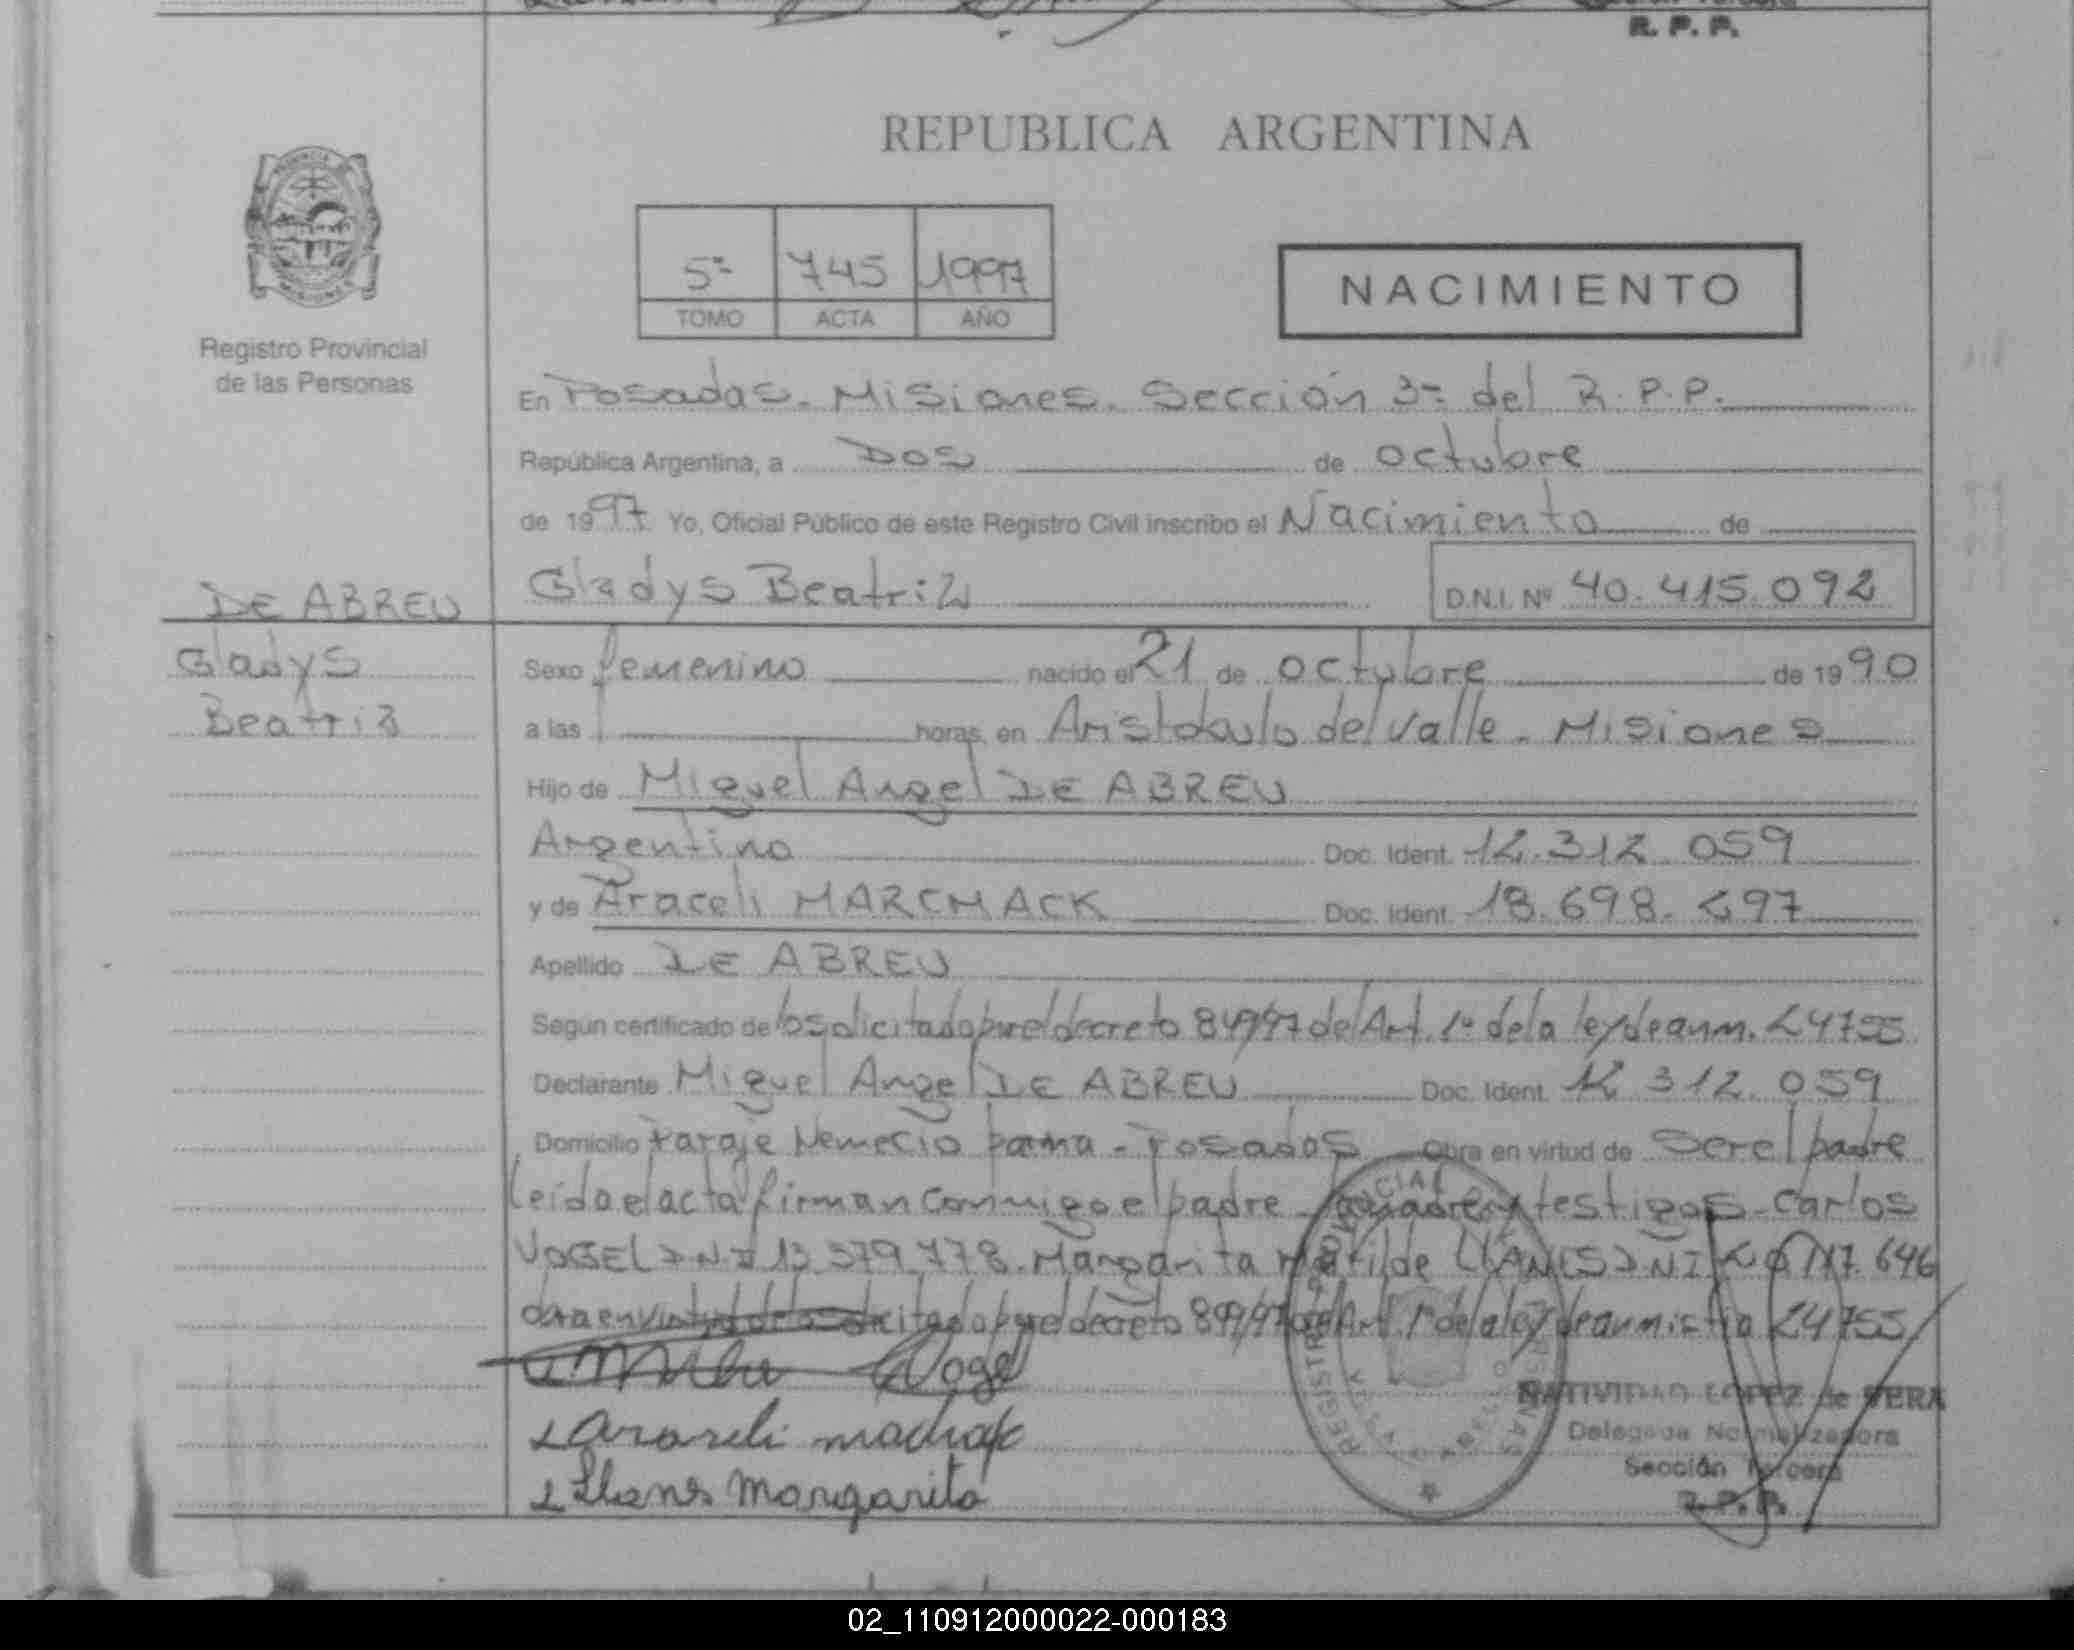 R. P. P.
REPUBLICA ARGENTINA
5ª 745 1997
TOMO ACTA AÑO
NACIMIENTO
Registro Provincial
de las Personas
En Posadas. Misiones. Sección 3ª del R.P.P.
República Argentina, a Dos de octubre
de 1997 Yo, Oficial Público de este Registro Civil inscribo el Nacimiento de
DE ABREU
Gladys Beatriz
D.N.I. Nº 40.415.092
Gladys
Beatriz
Sexo femenino nacido el 21 de octubre de 1990
a las horas, en Aristobulo del Valle. Misiones
Hijo de Miguel Angel DE ABREU
Argentino Doc. Ident. 12.312.059
y de Araceli MARCMACK Doc. Ident. 18.698.297
Apellido DE ABREU
Según certificado de lo solicitado por el decreto 849/97 del Art. 1º de la ley de anm. 24755
Declarante Miguel Angel DE ABREU Doc. Ident. 12 312. 059
Domicilio Paraje Nemecio parma - Posadas Obra en virtud de Ser el padre
Leida el acta firman conmigo el padre la madre y testigos Carlos
VOGEL DNI 13.379.778. Margarita Matilde LLANES DNI 117.646
en virtud de lo solicitado por el decreto 849/97 del Art. 1º de la ley de anmistia 24755
Vogel
Araseli
Llanes Margarita
REGISTRO PROVINCIAL PERSONAS
NATIVIDAD LOPEZ de VERA
Delegada Normalizadora
Sección Tercera
R. P. P.
02_110912000022-000183